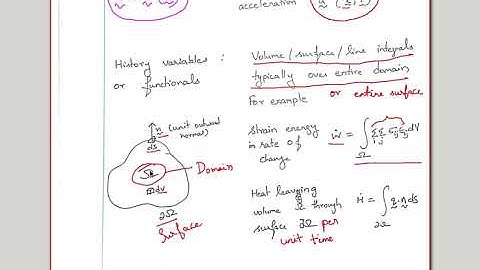 acceleration
History variables :
or functionals
Volume/surface/line integrals
typically over entire domain
For example or entire surface
n (unit outward
normal)
ds
Domain
dv
∂Ω
Surface
Strain energy
in rate of
change
Ω
Heat leaving
volume Ω through
surface ∂Ω per
unit time
Ḣ = ∫ q.n ds
∂Ω